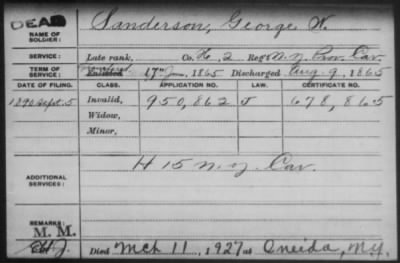 DEAD
NAME OF SOLDIER: Sanderson, George W.
SERVICE: Late rank, Co. H, 2 Reg't N.Y. Prov. Cav.
TERM OF SERVICE: Enlisted 17" June, 1865 Discharged Aug. 9, 1865
DATE OF FILING. CLASS. APPLICATION NO. LAW. CERTIFICATE NO.
1890 Sept. 5 Invalid, 950,862 J 678,865
Widow,
Minor,
ADDITIONAL SERVICES: H 15 N.Y. Cav.
REMARKS:
M. M.
Died Mch 11, 1927 at Oneida, N.Y.